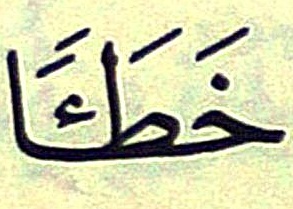 خَطَـًٔا